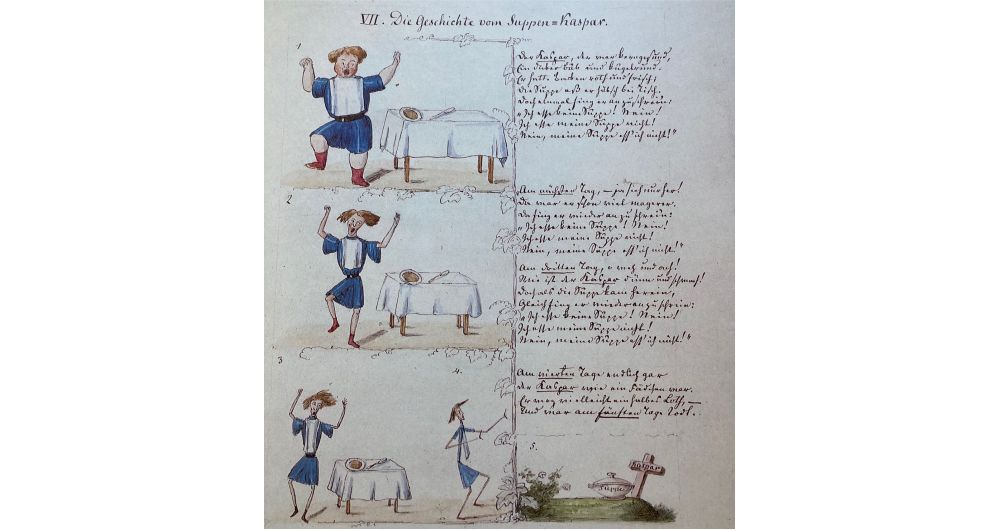 VII. Die Geschichte vom Suppen=Kaspar.
1
Der Kaspar, der war kerngesund,
Ein dicker Bub und kugelrund.
Er hatte Backen roth und frisch;
Die Suppe aß er hübsch bei Tisch.
Doch einmal fing er an zu schrein:
„Ich esse keine Suppe! Nein!
Ich esse meine Suppe nicht!
Nein, meine Suppe ess' ich nicht!"
2
Am nächsten Tag, — ja sieh nur her!
Da war er schon viel magerer.
Da fing er wieder an zu schrein:
„Ich esse keine Suppe! Nein!
Ich esse meine Suppe nicht!
Nein, meine Suppe ess' ich nicht!"
Am dritten Tag, o weh und ach!
Wie ist der Kaspar dünn und schwach!
Doch als die Suppe kam herein,
Gleich fing er wieder an zu schrein:
„Ich esse keine Suppe! Nein!
Ich esse meine Suppe nicht!
Nein, meine Suppe ess' ich nicht!"
3
4.
Am vierten Tage endlich gar
der Kaspar wie ein Fädchen war.
Er wog vielleicht ein halbes Loth, —
Und war am fünften Tage todt.
5.
Kaspar
Suppe